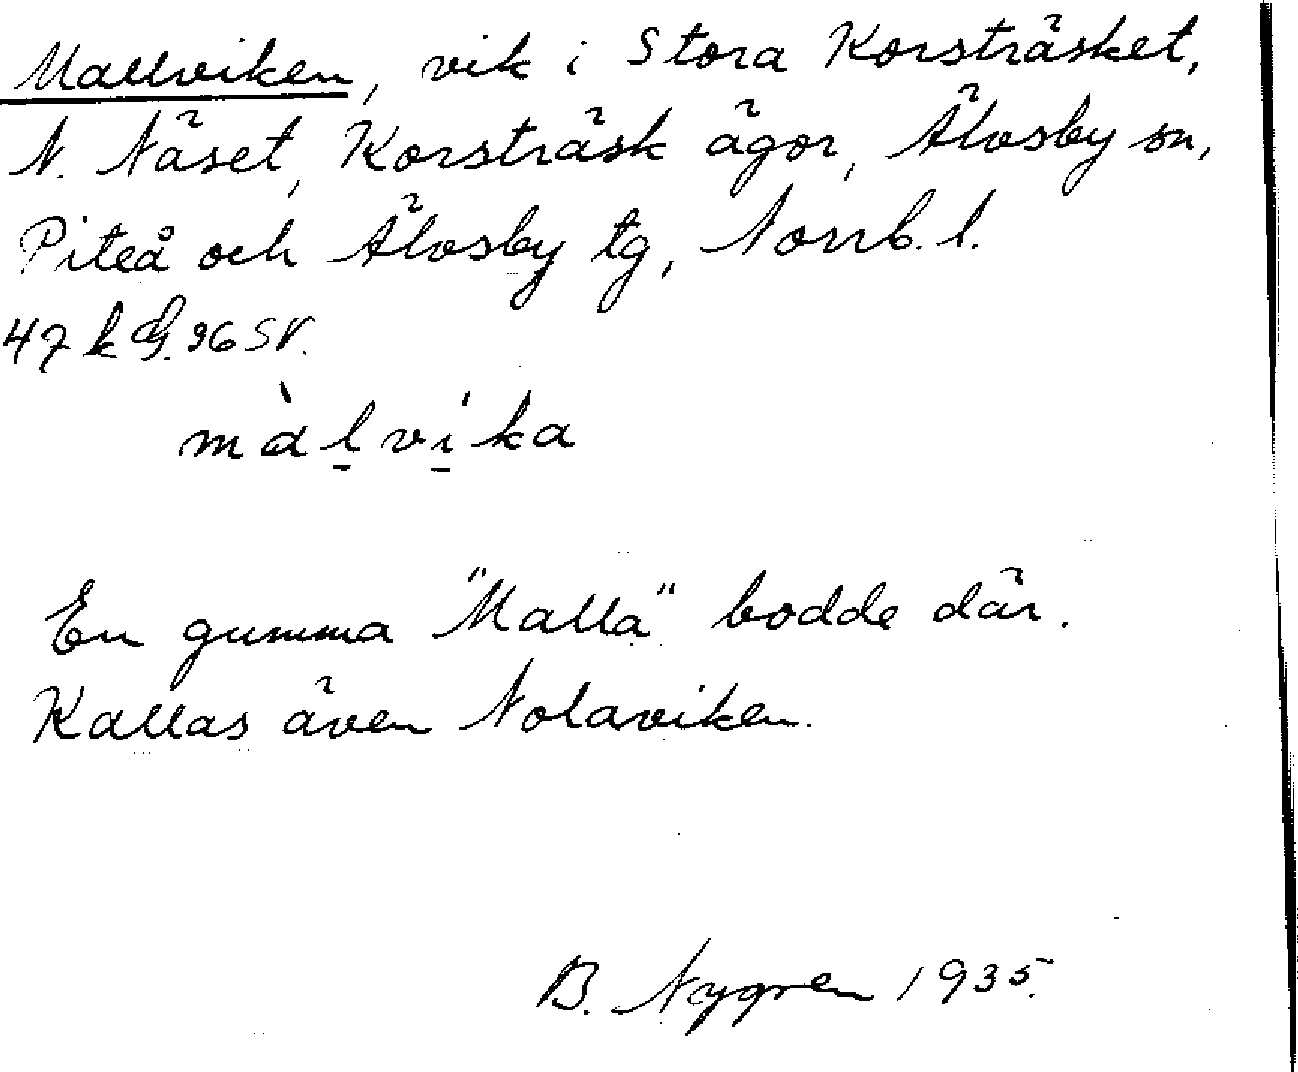 Mallviken, vik i Stora Korsträsket,
N. Näset, Korsträsk ägor, Älvsby sn,
Piteå och Älvsby tg, Norrb. l.
47 k 96 SV.
màl̠vi̠ ́ka
En gumma "Malla" bodde där.
Kallas även Nolaviken.
B. Nygren 1935.